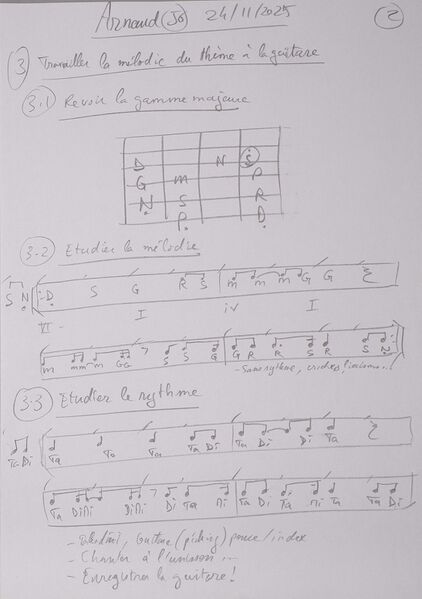 Arnaud (Jo) 24/11/2025 (2)
(3) Travailler la mélodie du thème à la guitare
3.1 Revoir la gamme majeure
D N S
G m P
N S R
P D
3-2 Etudier la mélodie
S N D S G R S m m m G G
VI - I iv I
m m m m G G S S G G R R S R S N
- Same rythme,
3.3 Etudier le rythme
Ta Di Ta Ta Ta Ta Di Ta Di Di Ta
Ta Di Ni Di Ni Di Ta Ni Ta Di Ta Ni Ta Ta Di
- guitare (picking) pouce/index
- Chanter à l'unisson ...
- Enregistrer la guitare !